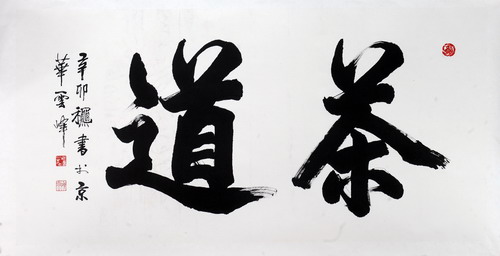 茶道
辛卯穐書於京
華雲峰